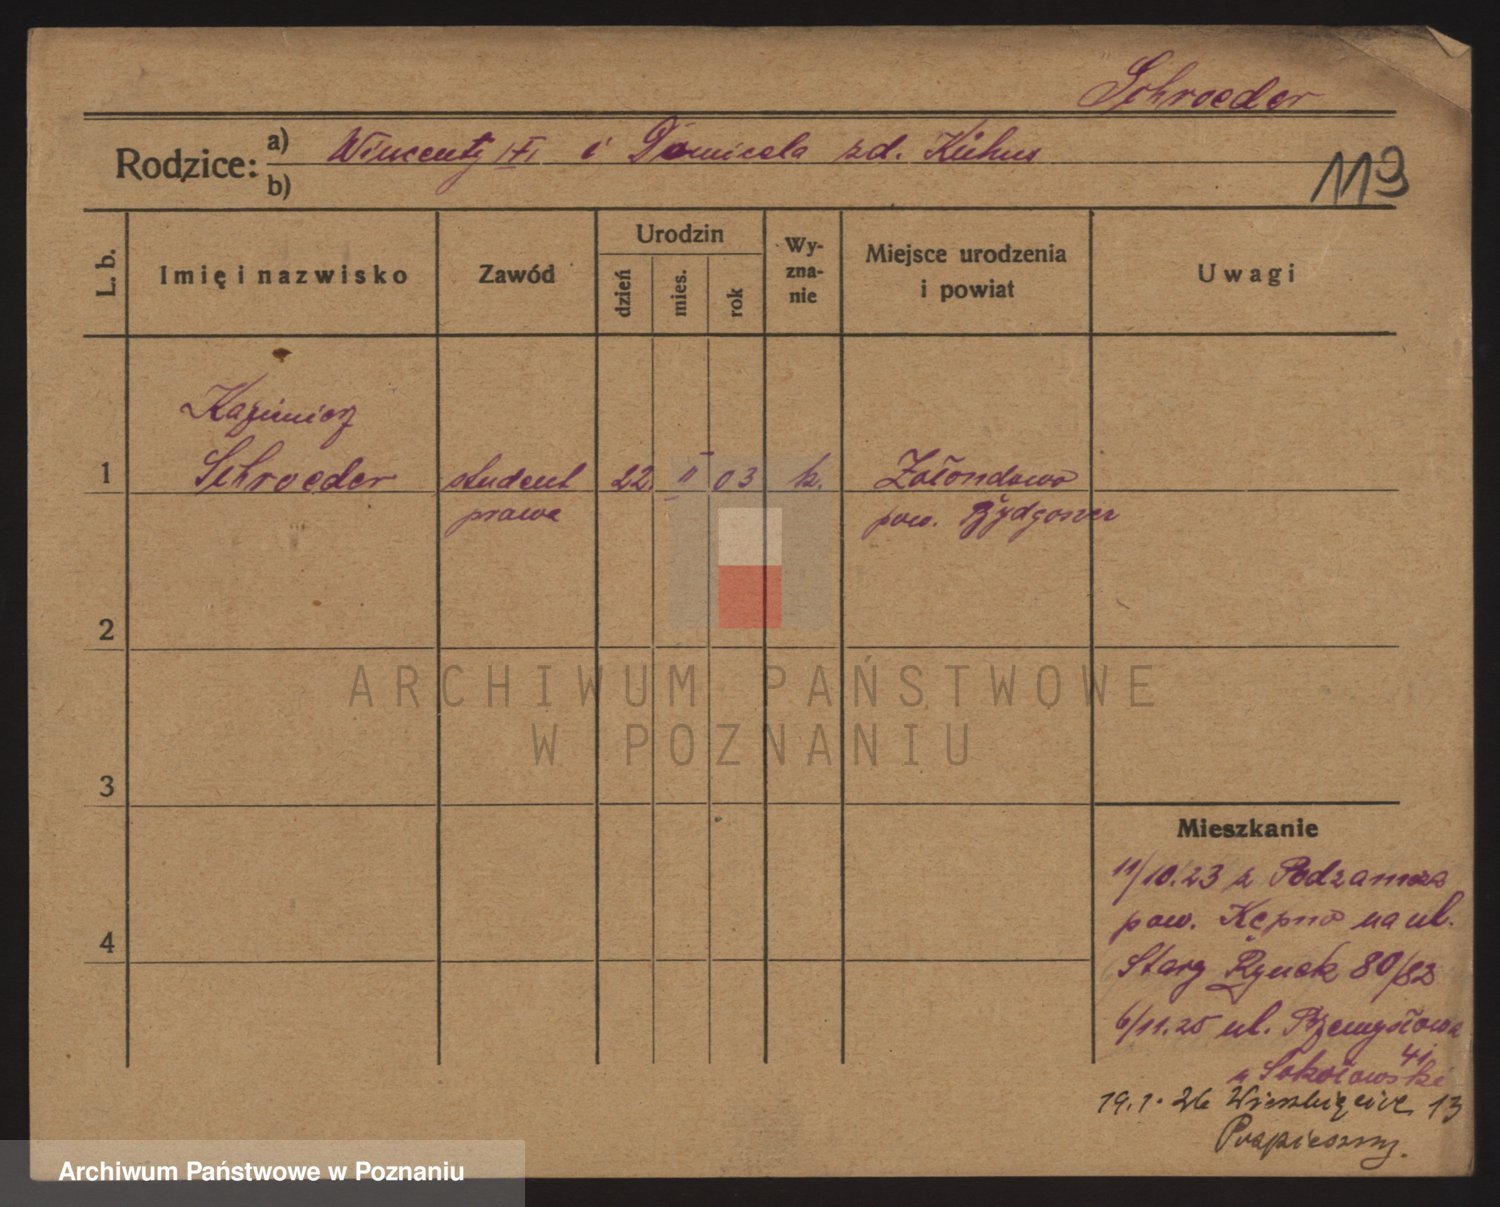 Schroeder
Rodzice:
a) Wincenty i Domicela zd. Kühns
b)
119
L. b.
Imię i nazwisko
Zawód
Urodzin
dzień
mies.
rok
Wy-
zna-
nie
Miejsce urodzenia
i powiat
Uwagi
Kazimierz
1 Schroeder student 22. II 03 k. Żołondowo
prawa pow. Bydgoszcz
2
3
4
Mieszkanie
11/10.23 z Podzamcza
pow. Kępno na ul.
Stary Rynek 80/82
6/11.25 ul. Przemysłowa
41
u Sokołowski
19.1.26 Wierzbięcice 13
ARCHIWUM PAŃSTWOWE
W POZNANIU
Archiwum Państwowe w Poznaniu